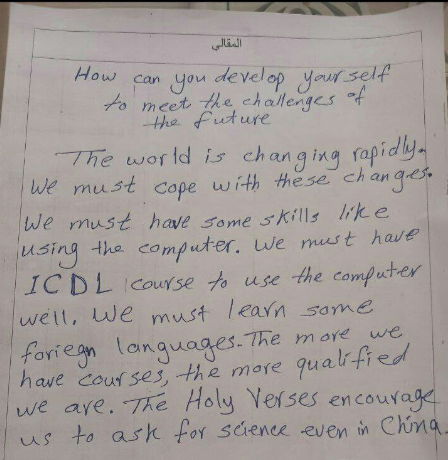 المقالي
How can you develop yourself
to meet the challenges of
the future
The world is changing rapidly.
We must cope with these changes.
We must have some skills like
using the computer. We must have
ICDL course to use the computer
well. We must learn some
foriegn languages. The more we
have courses, the more qualified
we are. The Holy Verses encourage
us to ask for science even in China.